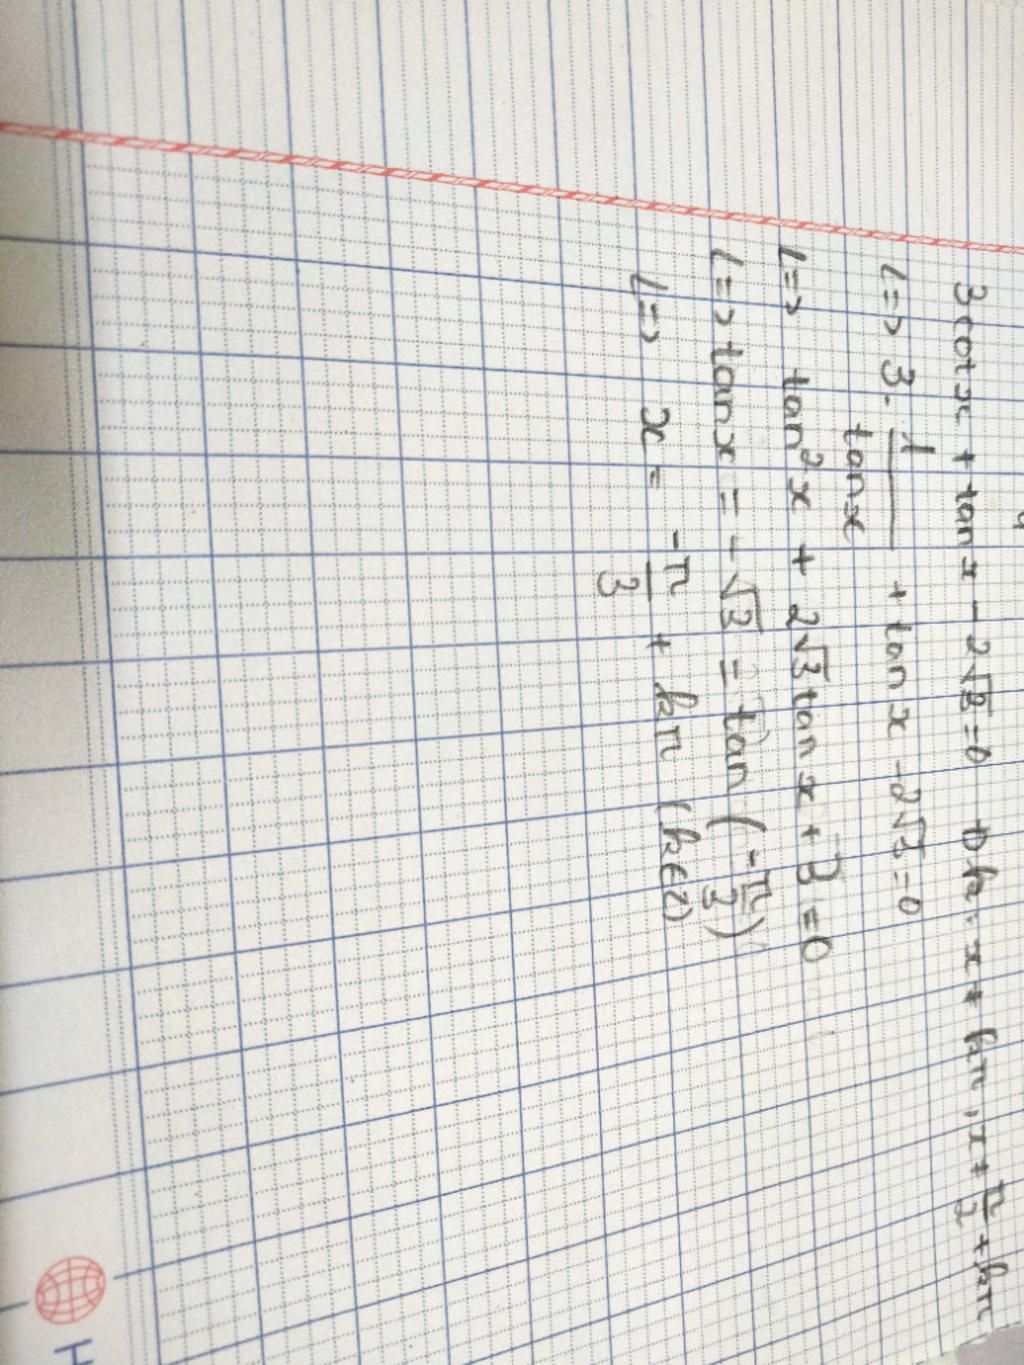 4
3cotx + tanx - 2√3 = 0 Đk: x ≠ kπ, x ≠ π/2 + kπ
<=> 3. 1/tanx + tanx - 2√3 = 0
<=> tan²x + 2√3 tanx + 3 = 0
<=> tanx = -√3 = tan(-π/3)
<=> x = -π/3 + kπ (k∈Z)
H